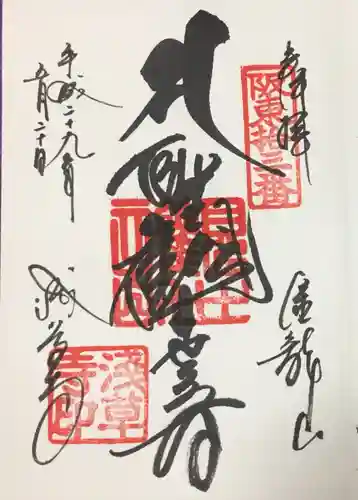 奉拝
阪東拾三番
金龍山
聖観世音
平成二十九年
五月二十日
浅草寺
浅草寺印